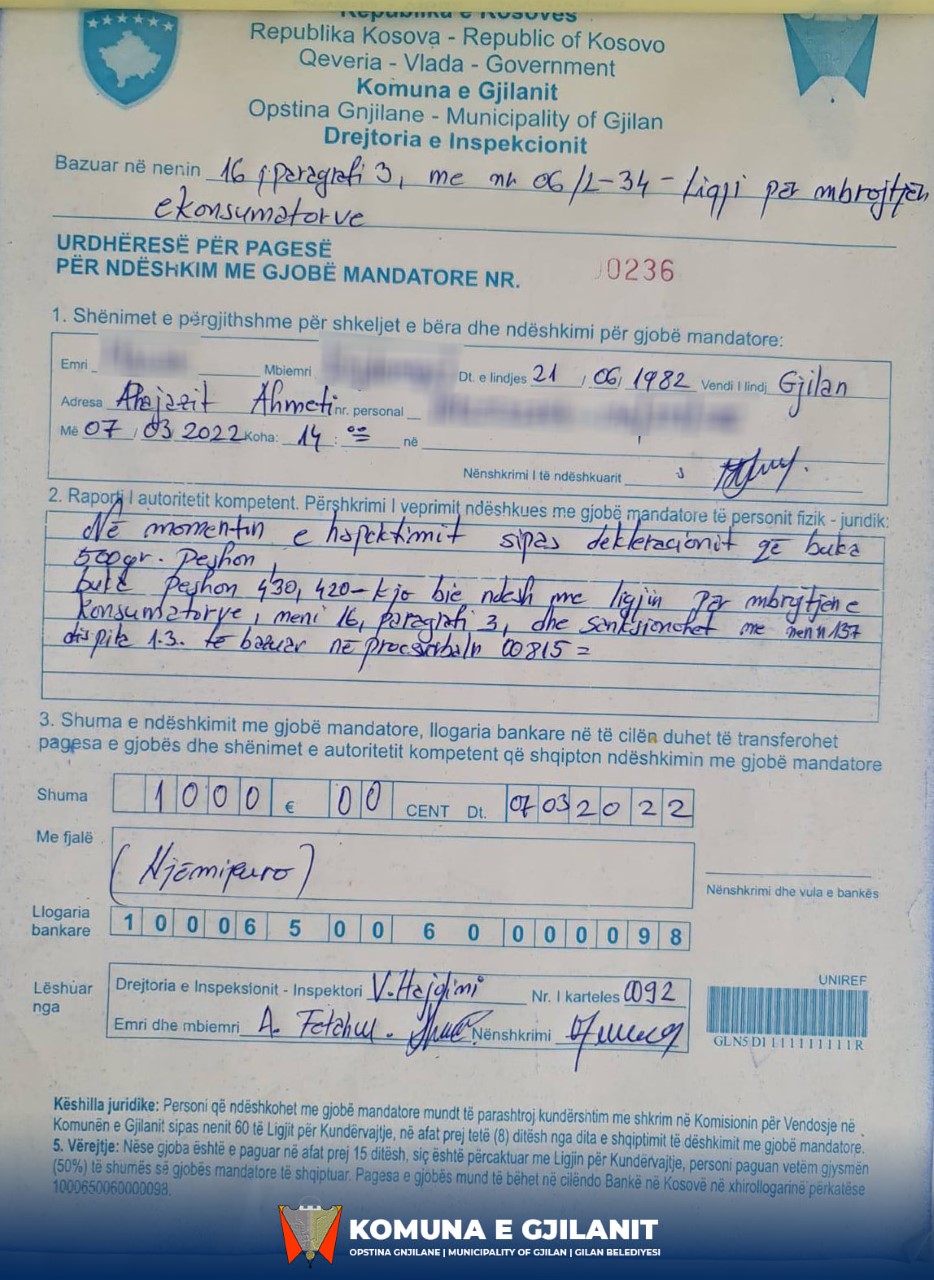 Republika e Kosovës
Republika Kosova - Republic of Kosovo
Qeveria - Vlada - Government
Komuna e Gjilanit
Opstina Gnjilane - Municipality of Gjilan
Drejtoria e Inspekcionit
Bazuar në nenin 16, paragrafi 3, me nr 06/L-34 - Ligji për mbrojtjen
ekonsumatorve
URDHËRESË PËR PAGESË
PËR NDËSHKIM ME GJOBË MANDATORE NR. 00236
1. Shënimet e përgjithshme për shkeljet e bëra dhe ndëshkimi për gjobë mandatore:
Emri Mbiemri Dt. e lindjes 21 / 06 / 1982 Vendi I lindj Gjilan
Adresa Ahmeti nr. personal
Më 07 / 03 2022 Koha: 14 : 00 në
Nënshkrimi I të ndëshkuarit
2. Raporti I autoritetit kompetent. Përshkrimi I veprimit ndëshkues me gjobë mandatore të personit fizik - juridik:
Në momentin e sipas dekleracionit që buka
500gr. Peshon
bukë peshon 430, 420 - kjo bie ndesh me ligjin për mbrojtjen e
Konsumatorve, neni 16, paragrafi 3, dhe sanksionohet me nenin 137
1.3. të bazuar në 00815 =
3. Shuma e ndëshkimit me gjobë mandatore, llogaria bankare në të cilën duhet të transferohet
pagesa e gjobës dhe shënimet e autoritetit kompetent që shqipton ndëshkimin me gjobë mandatore
Shuma 1000 € 00 CENT Dt. 07 03 2022
Me fjalë
(Njëmijeuro)
Nënshkrimi dhe vula e bankës
Llogaria
bankare 1000650060000098
Lëshuar
nga
Drejtoria e Inspeksionit - Inspektori V. Hajdini Nr. I karteles 0092
Emri dhe mbiemri A. Fetahu Nënshkrimi
UNIREF
GLN5 D1 1111111111R
Këshilla juridike: Personi që ndëshkohet me gjobë mandatore mundt të parashtroj kundërshtim me shkrim në Komisionin për Vendosje në
Komunën e Gjilanit sipas nenit 60 të Ligjit për Kundërvajtje, në afat prej tetë (8) ditësh nga dita e shqiptimit të dëshkimit me gjobë mandatore.
5. Vërejtje: Nëse gjoba është e paguar në afat prej 15 ditësh, siç është përcaktuar me Ligjin për Kundërvajtje, personi paguan vetëm gjysmën
(50%) të shumës së gjobës mandatore të shqiptuar. Pagesa e gjobës mund të bëhet në cilëndo Bankë në Kosovë në xhirollogarinë përkatëse
1000650060000098.
KOMUNA E GJILANIT
OPSTINA GNJILANE | MUNICIPALITY OF GJILAN | GILAN BELEDIYESI